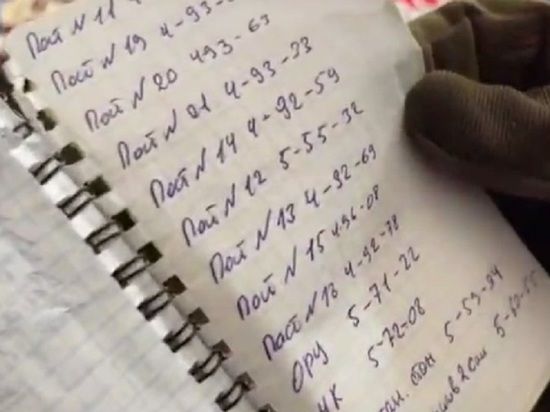 Пост N 11 4-93-
Пост N 19 4-93-
Пост N 20 493-63
Пост N 21 4-93-33
Пост N 14 4-92-59
Пост N 12 5-55-32
Пост N 13 4-92-69
Пост N 15 4-96-08
Пост N 18 4-92-78
ОРУ 5-71-22
5-72-08
5-59-94
5-60-55